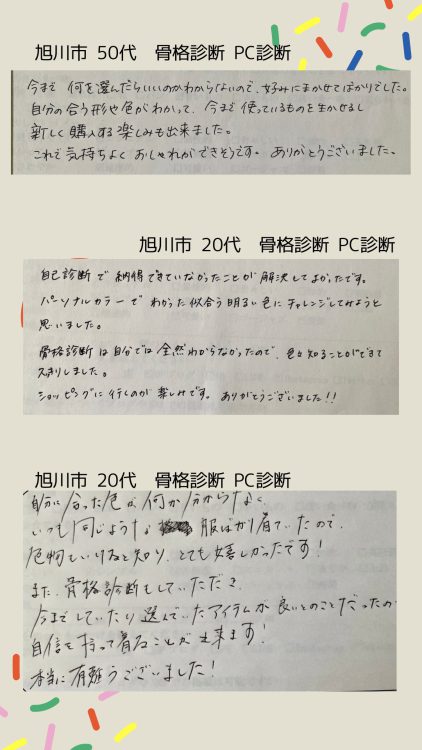 旭川市 50代　骨格診断 PC診断
今まで 何を選んだらいいのかわからないので、好みにまかせてばかりでした。
自分の合う形や色がわかって、今まで使っているものを生かせるし
新しく購入する楽しみも出来ました。
これで気持ちよく おしゃれができそうです。ありがとうございました。
旭川市 20代　骨格診断 PC診断
自己診断で納得できていなかったことが解決してよかったです。
パーソナルカラーでわかった似合う明るい色にチャレンジしてみようと
思いました。
骨格診断は自分では全然わからなかったので、色々知ることができて
スッキリしました。
ショッピングに行くのが楽しみです。ありがとうございました!!
旭川市 20代　骨格診断 PC診断
自分に合った色が何か分からなく、
いつも同じような 服ばかり着ていたので、
色物もいけると知り、とても嬉しかったです!
また、骨格診断もしていただき、
今までしていたり選んでいたアイテムが良いとのことだったの
自信を持って着ることが出来ます!
本当に有難うございました!